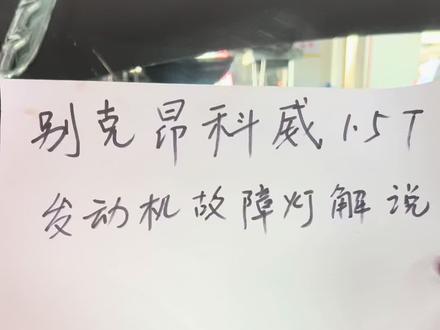 别克昂科威1.5T
发动机故障灯解说